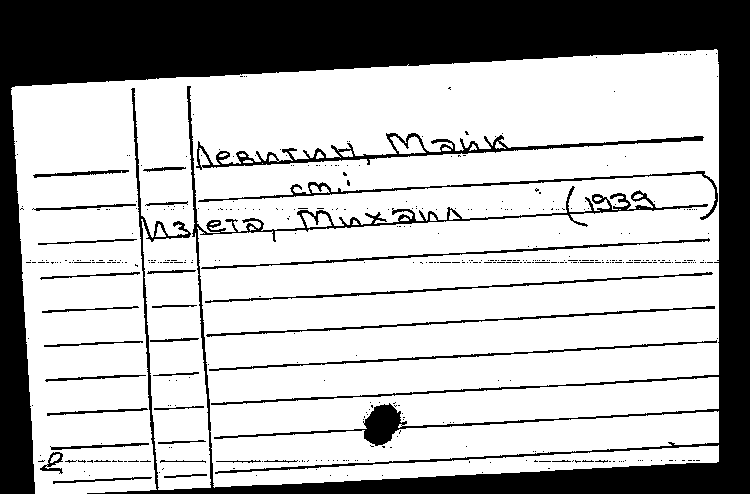 Левитин, Майк
ст.:
Излета, Михаил (1939)